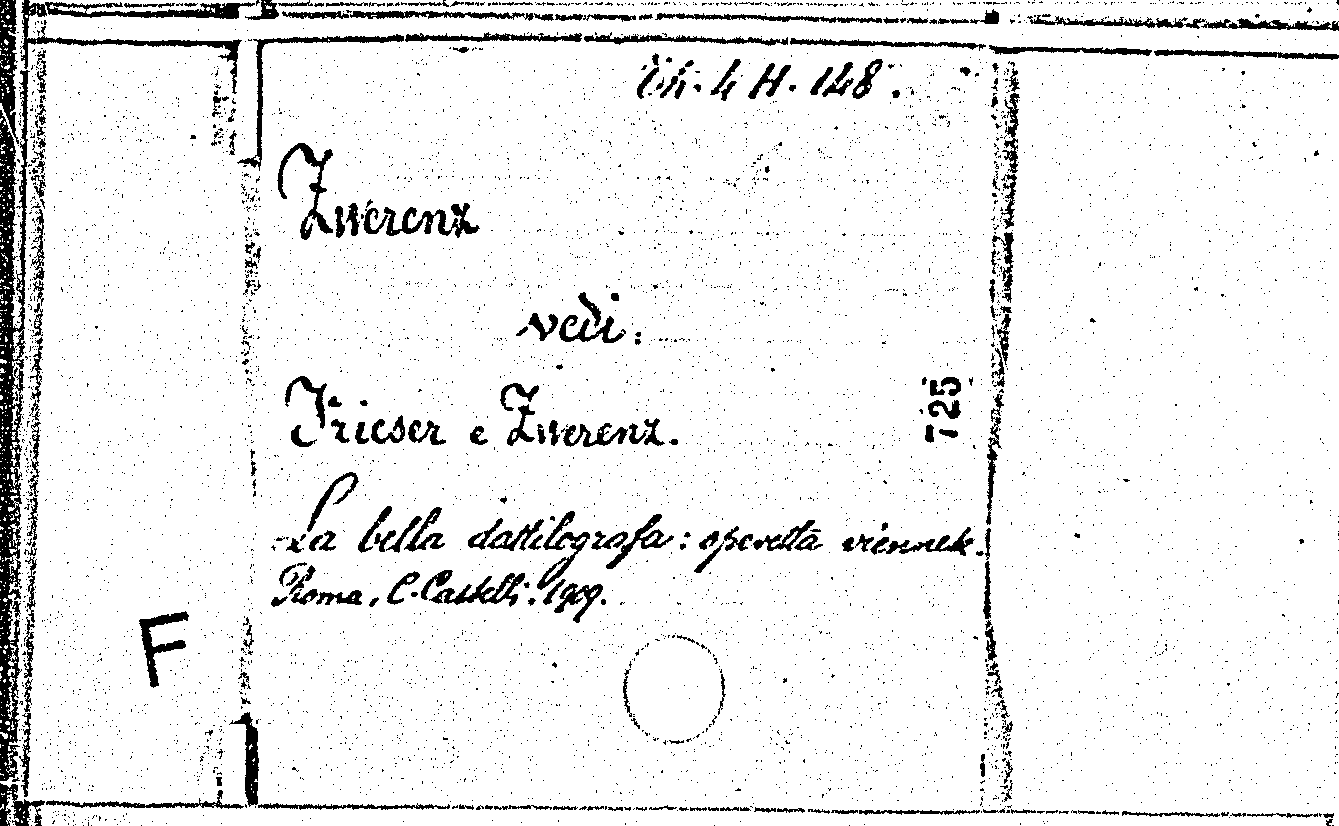 Th. 4 H. 148.
Zwerenz
vedi:
Frieser e Zwerenz.
La bella dattilografa: operetta viennese.
Roma, C. Castelli. 1909.
725
F